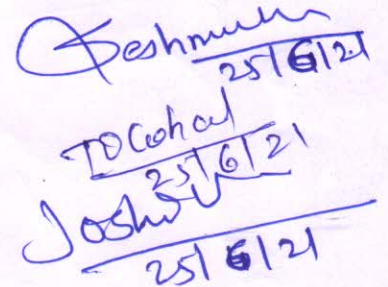 Deshmukh
25/6/21
25/6/21
Joshi
25/6/21